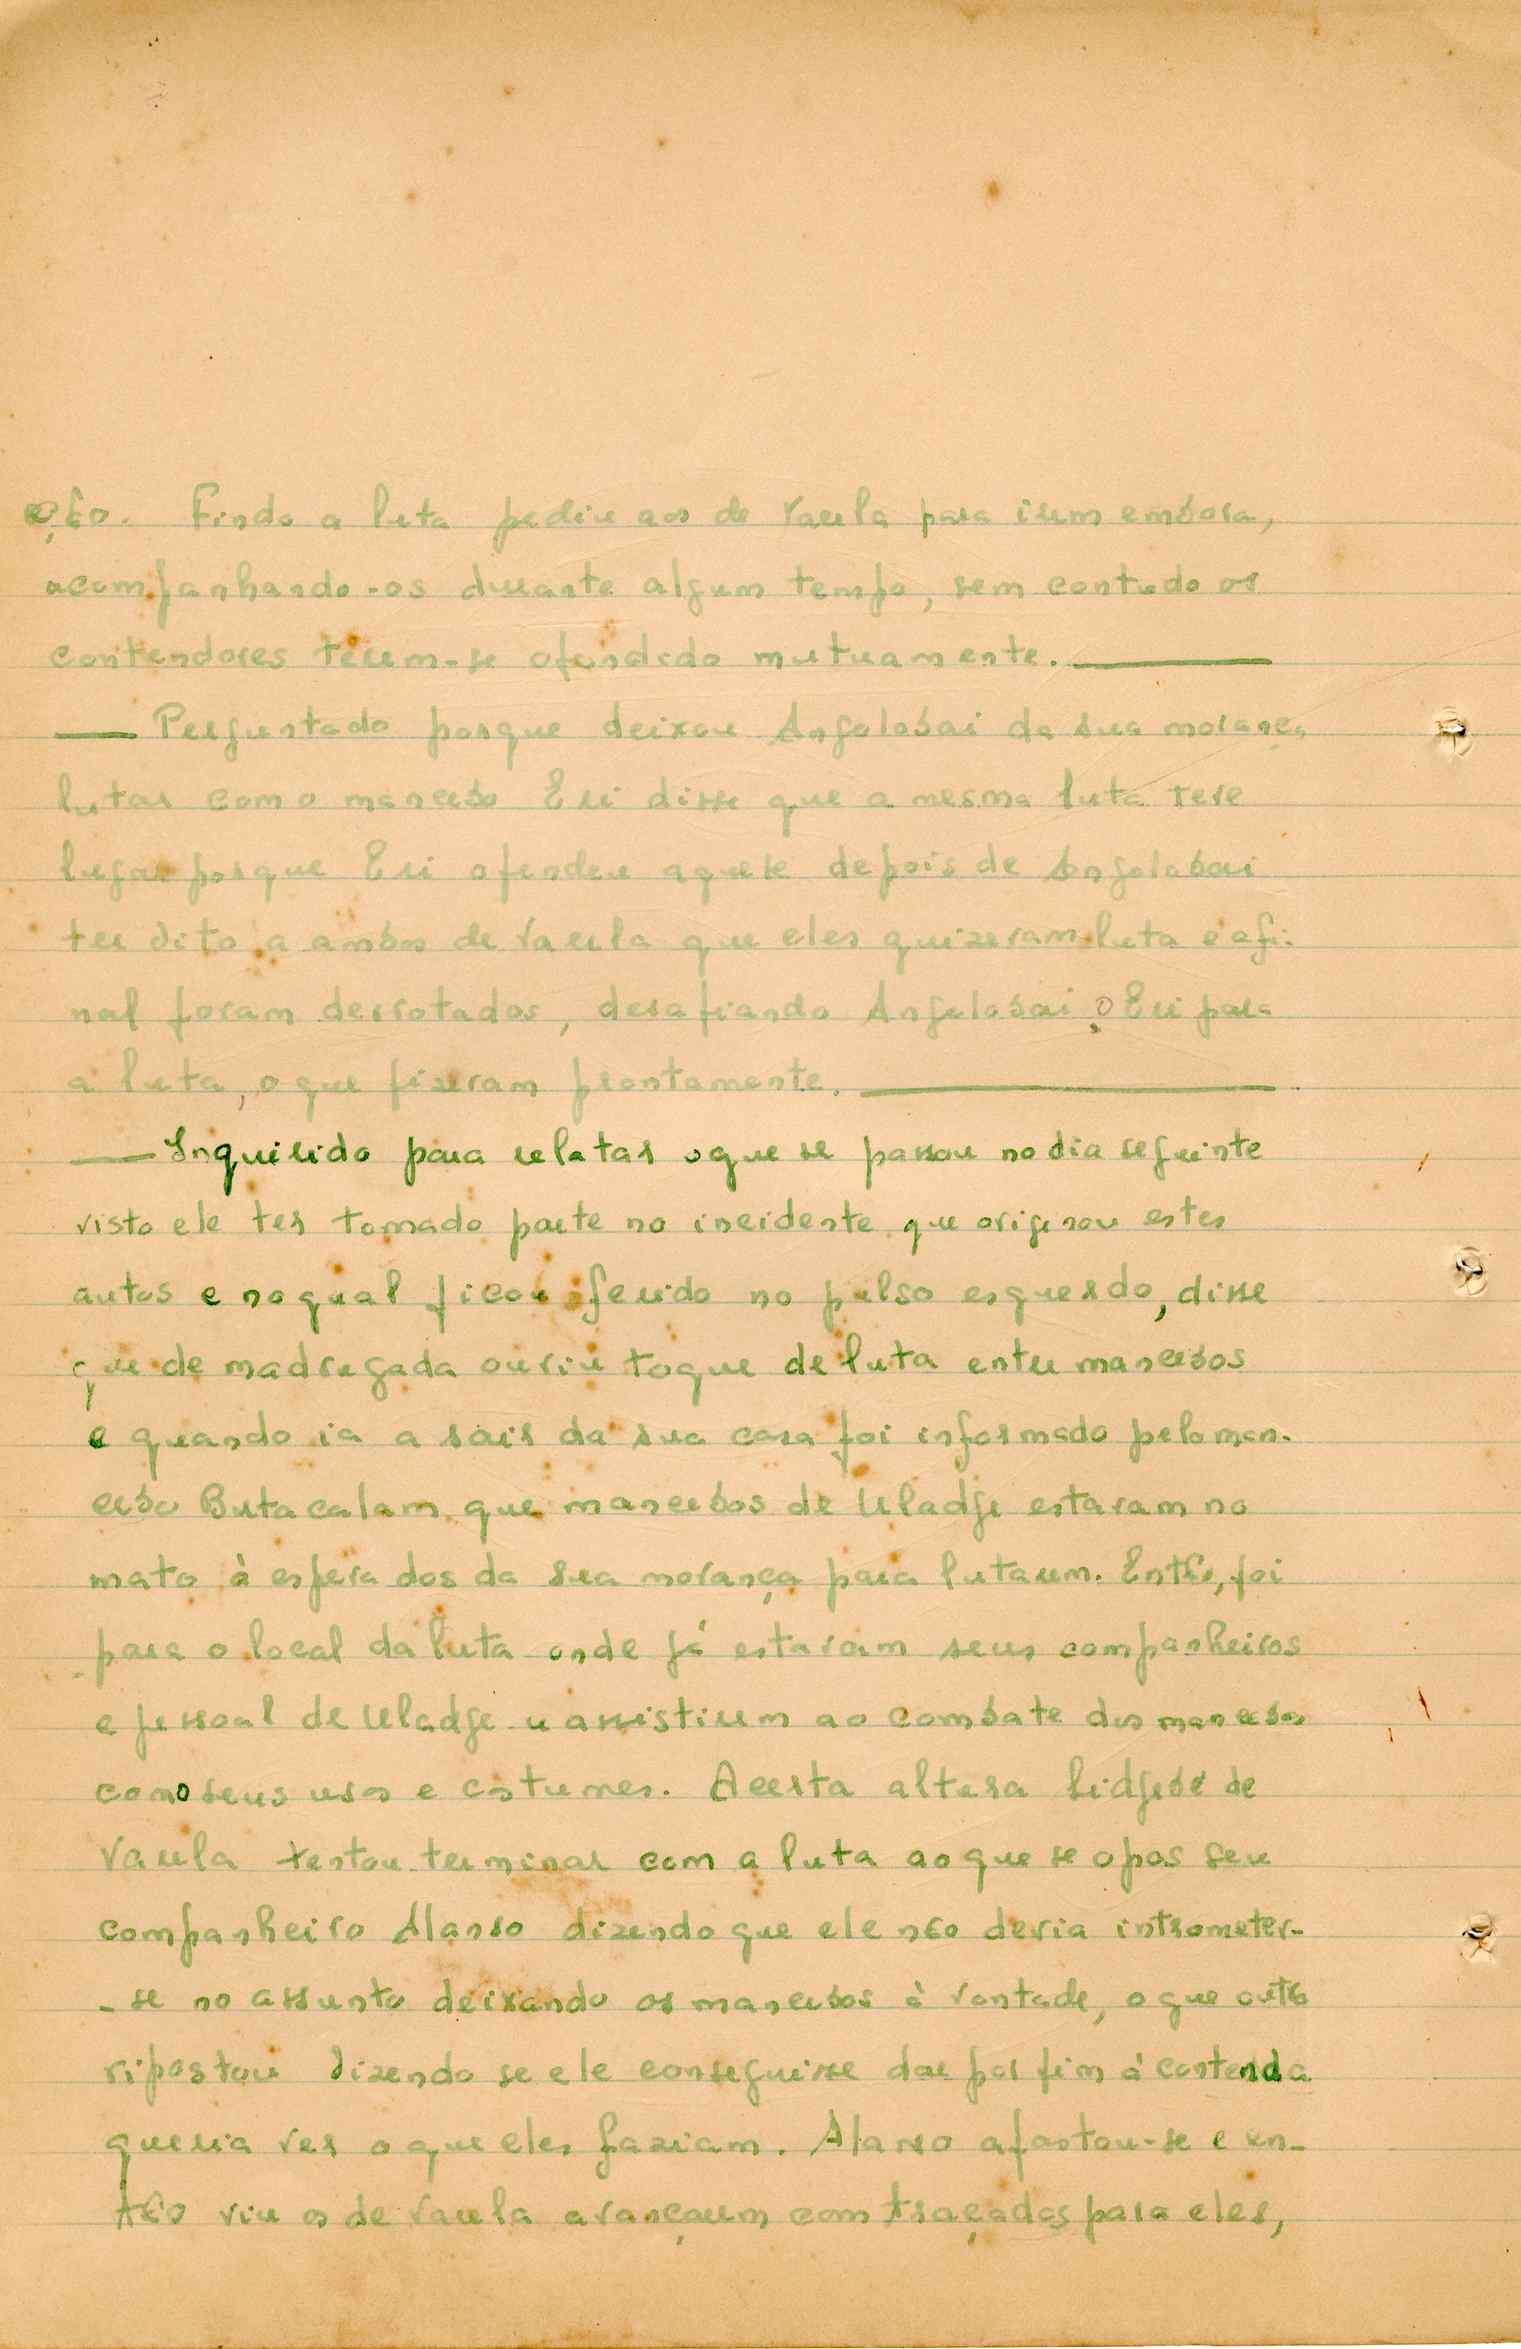 ção. Finda a luta pediu aos de Varela para irem embora,
acompanhando-os durante algum tempo, sem contudo os
contendores terem-se ofendido mutuamente.
— Perguntado porque deixou Angolabai da sua morança
lutar com o mancebo Eri disse que a mesma luta teve
lugar porque Eri ofendeu aquele depois de Angolabai
ter dito a ambos de Varela que eles quizeram luta e afi-
nal foram derrotados, desafiando Angolabai o Eri para
a luta, o que fizeram prontamente.
— Inquirido para relatar o que se passou no dia seguinte
visto ele ter tomado parte no incidente que originou estes
autos e no qual ficou ferido no pulso esquerdo, disse
que de madrugada ouviu toque de luta entre mancebos
e quando ia a sair da sua casa foi informado pelo man-
cebo Butacalam que mancebos de Uladge estavam no
mato à espera dos da sua morança para lutarem. Então, foi
para o local da luta onde já estavam seus companheiros
e pessoal de Uladge a assistirem ao combate dos mancebos
como seus usos e costumes. A certa altura de
Varela tentou terminar com a luta ao que se opos seu
companheiro Alanso dizendo que ele não devia intrometer-
-se no assunto deixando os mancebos à vontade, o que outro
ripostou dizendo se ele conseguisse dar por fim à contenda
queria ver o que eles faziam. Alanso afastou-se e en-
tão viu os de Varela avançarem com traçados para eles,